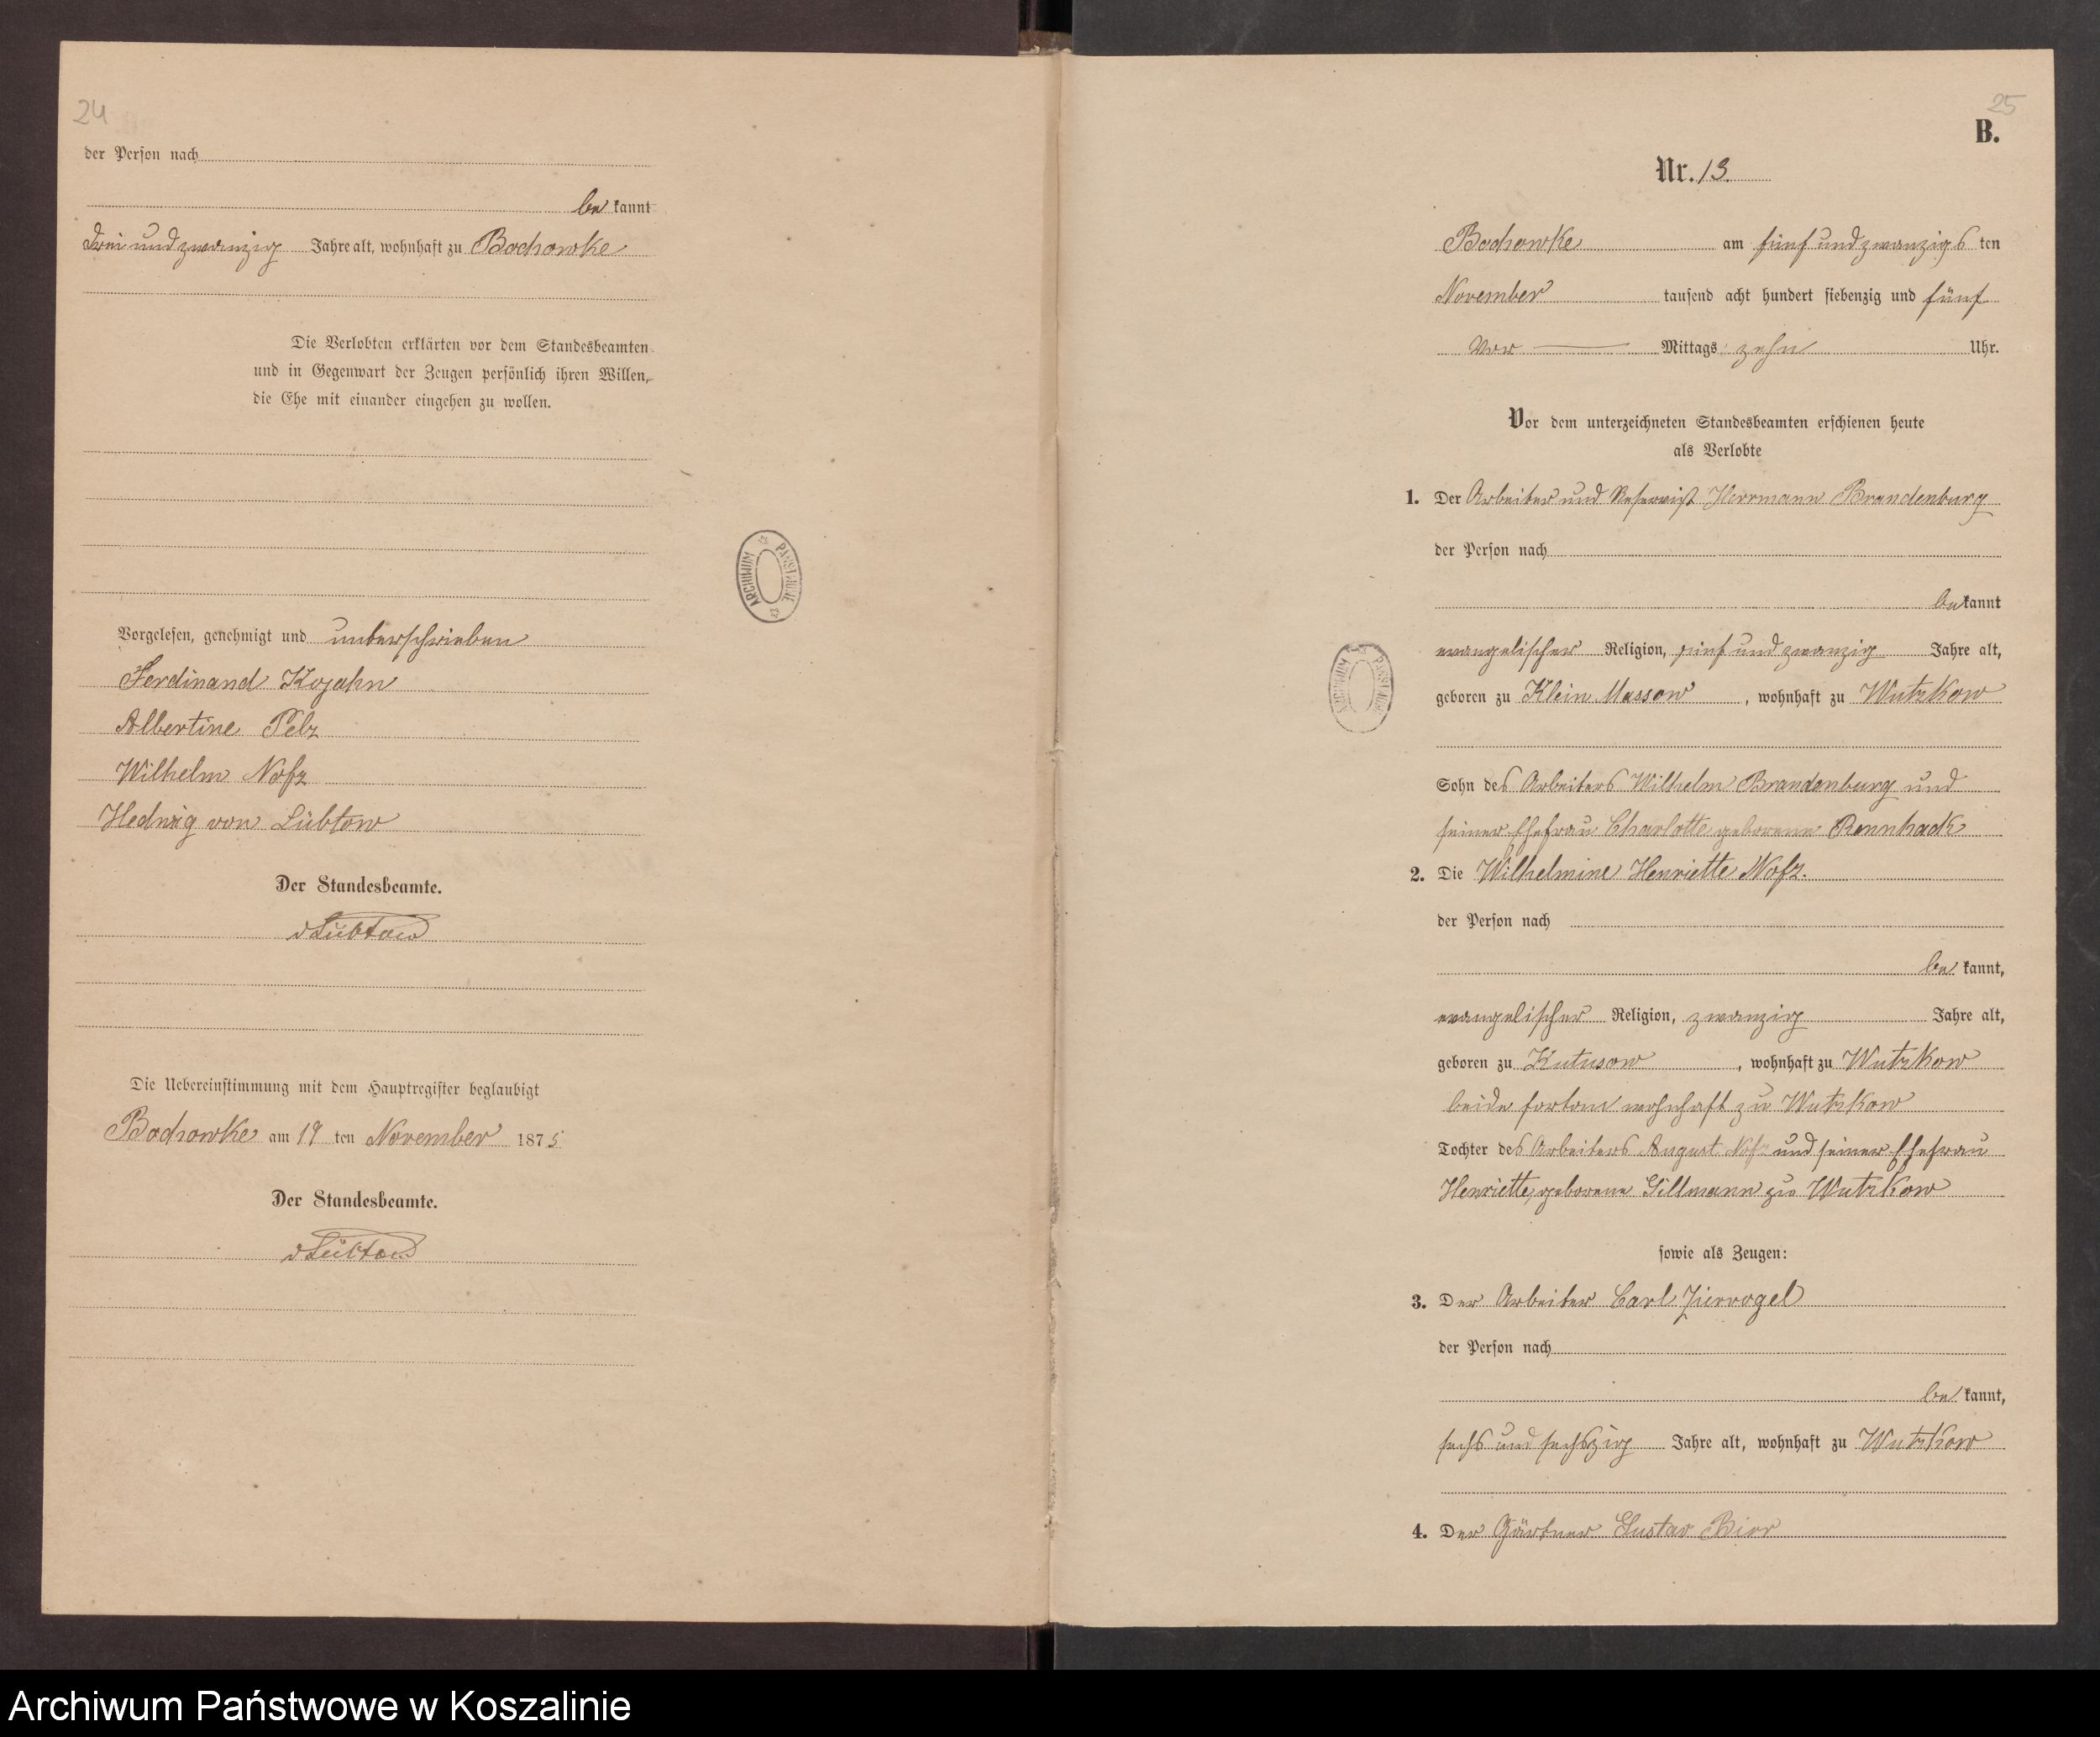 24
der Person nach
be kannt
drei und zwanzig Jahre alt, wohnhaft zu Bochowke
Die Verlobten erklärten vor dem Standesbeamten
und in Gegenwart der Zeugen persönlich ihren Willen,
die Ehe mit einander eingehen zu wollen.
Vorgelesen, genehmigt und unterschrieben
Ferdinand Kojahn
Albertine Pelz
Wilhelm Nofz
Hedwig von Lübtow
Der Standesbeamte.
vLübtow
Die Uebereinstimmung mit dem Hauptregister beglaubigt
Bochowke am 19 ten November 1875
Der Standesbeamte.
vLübtow
ARCHIWUM PAŃSTWOWE
25
B.
Nr. 13.
Bochowke am fünf und zwanzigs ten
November tausend acht hundert siebenzig und fünf
Vor Mittags zehn Uhr.
Vor dem unterzeichneten Standesbeamten erschienen heute
als Verlobte
1. Der Arbeiter und Reservist Herrmann Brandenburg
der Person nach
be kannt
evangelischer Religion, fünf und zwanzig Jahre alt,
geboren zu Klein Massow, wohnhaft zu Wutzkow
Sohn des Arbeiters Wilhelm Brandenburg und
seiner Ehefrau Charlotte geborene Rennhack
2. Die Wilhelmine Henriette Nofz.
der Person nach
be kannt,
evangelischer Religion, zwanzig Jahre alt,
geboren zu Kutusow, wohnhaft zu Wutzkow
beide fortan wohnhaft zu Wutzkow
Tochter des Arbeiters August Nofz und seiner Ehefrau
Henriette, geborene Gillmann zu Wutzkow
sowie als Zeugen:
3. Der Arbeiter Carl Ziervogel
der Person nach
be kannt,
sechs und sechszig Jahre alt, wohnhaft zu Wutzkow
4. Der Gärtner Gustav Birr
ARCHIWUM PAŃSTWOWE
Archiwum Państwowe w Koszalinie